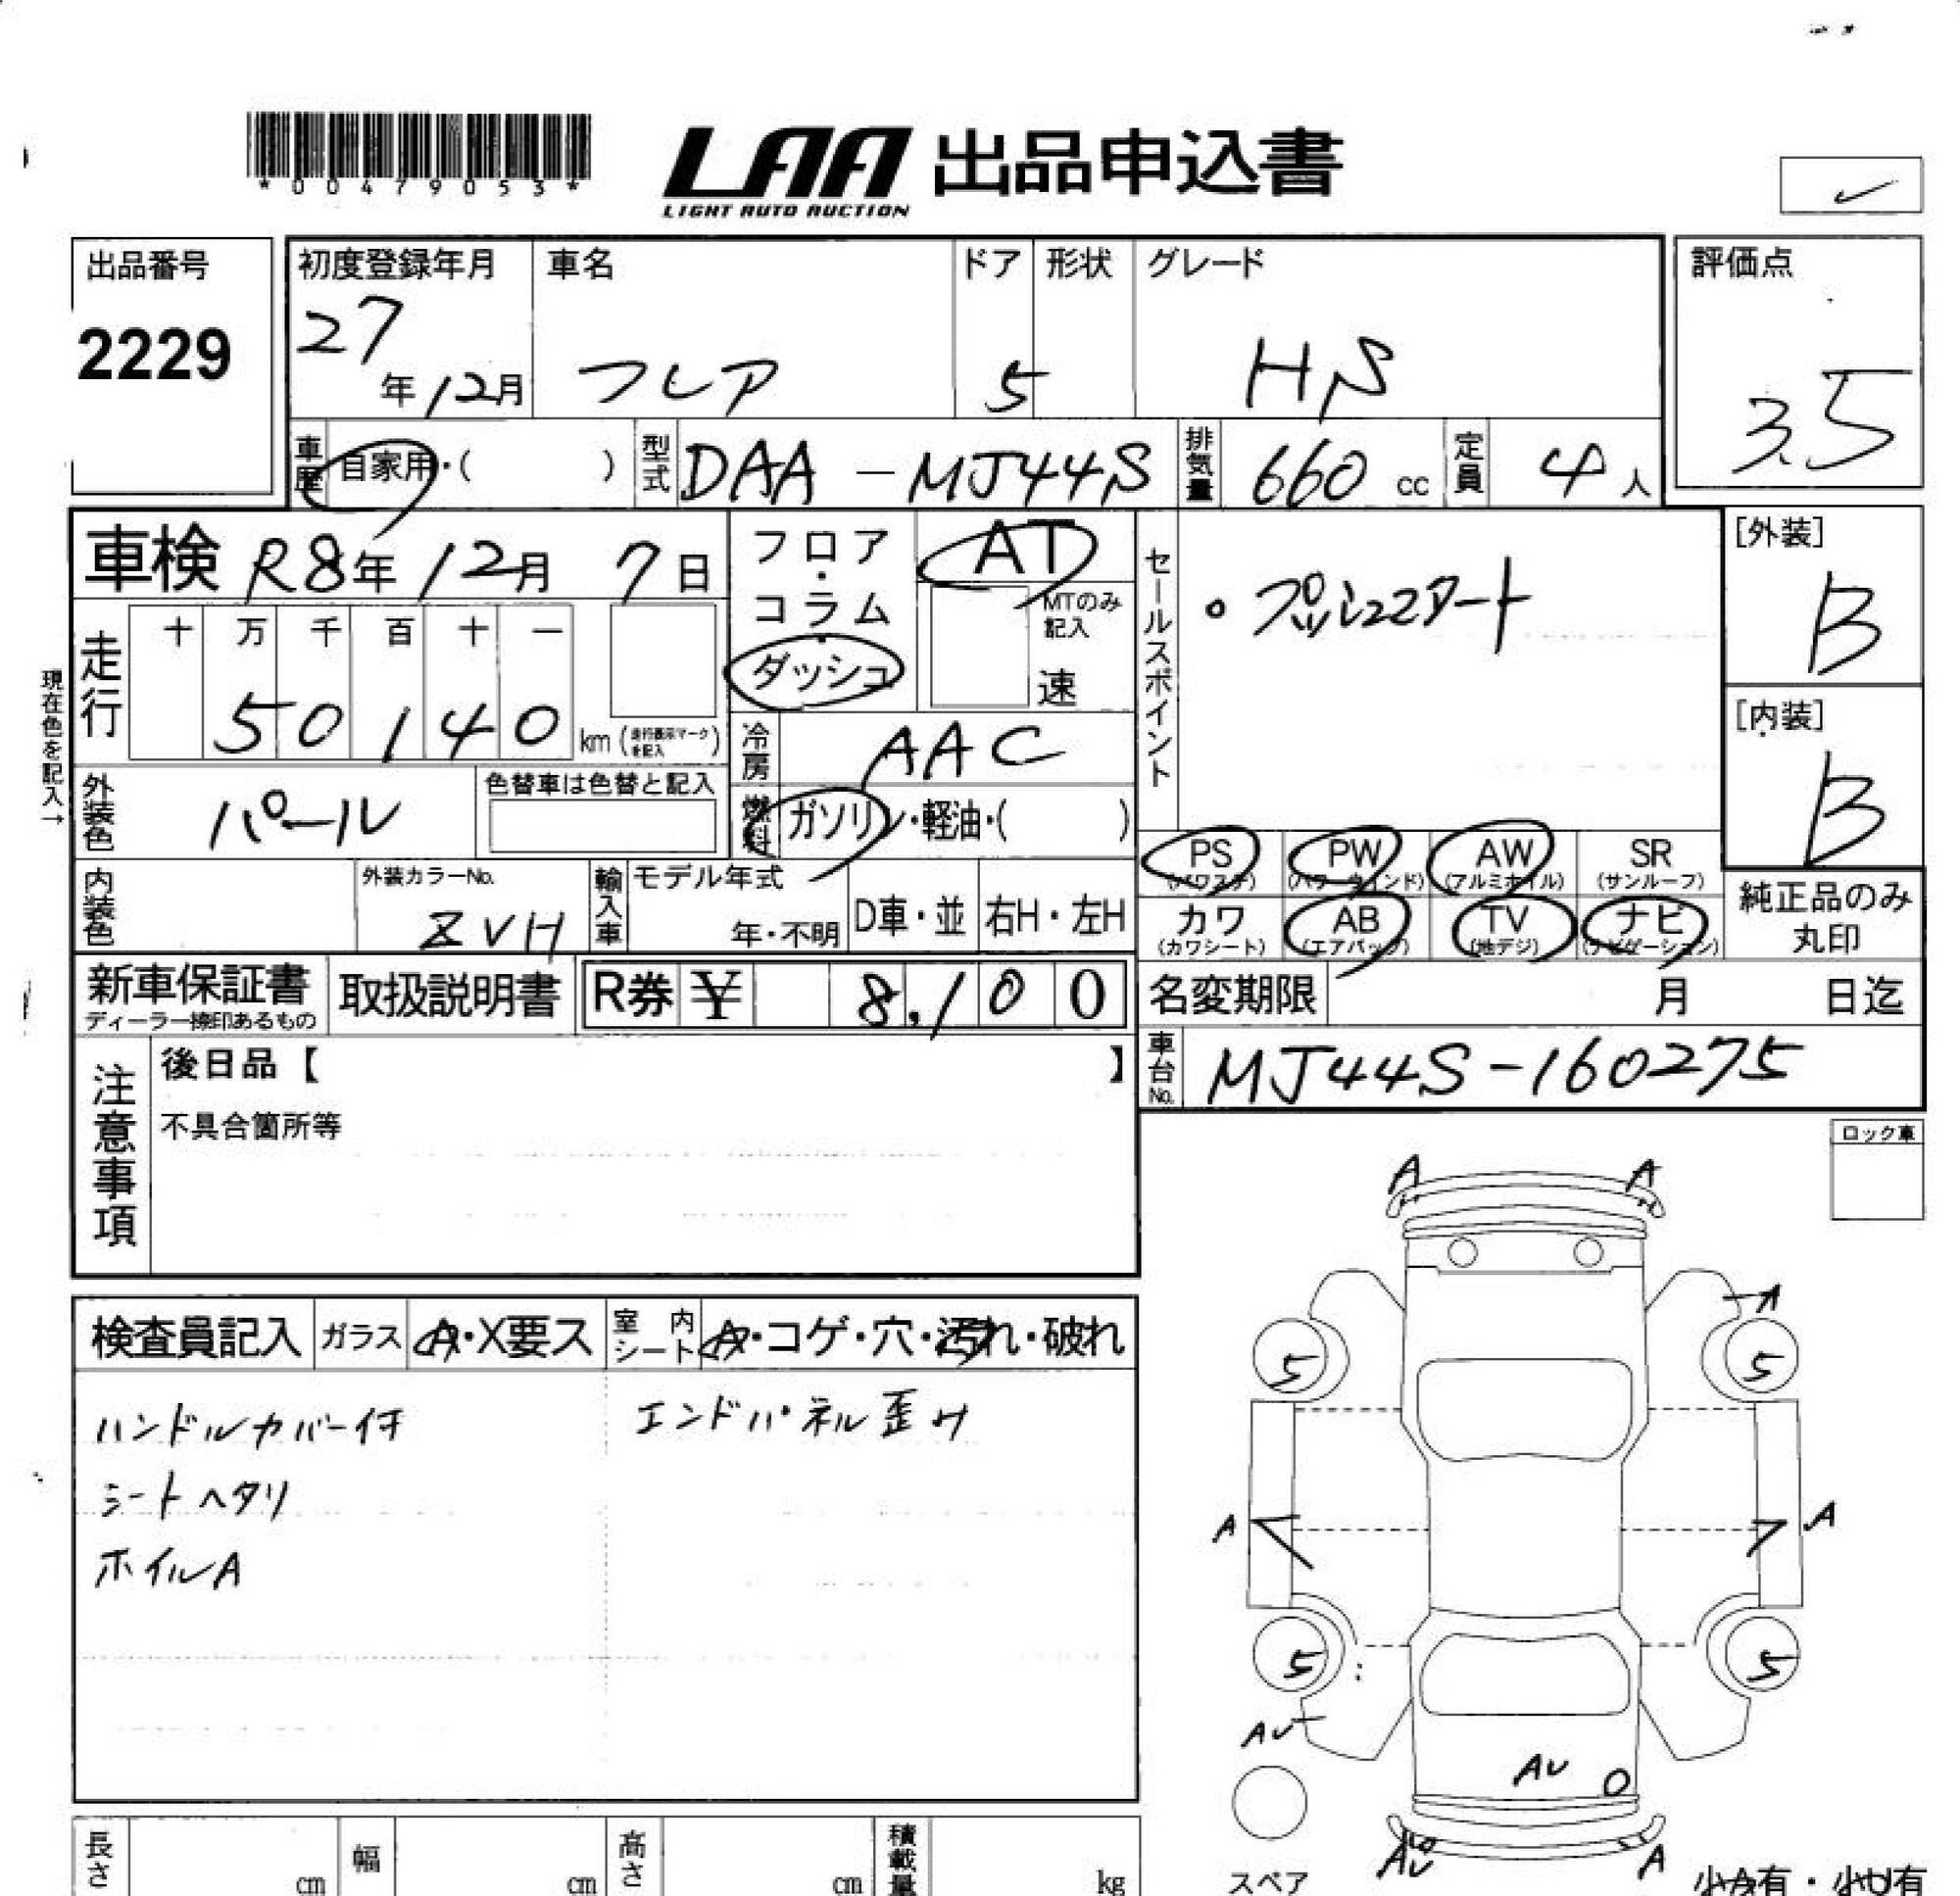 *00479053*
LAA 出品申込書
LIGHT AUTO AUCTION
出品番号
2229
初度登録年月
27年12月
車名
フレア
ドア
5
形状
グレード
HS
評価点
3.5
車歴 自家用・( )
型式 DAA-MJ44S
排気量 660 cc
定員 4人
車検 R8年12月7日
フロア・コラム・ダッシュ
AT
MTのみ記入
速
セールスポイント
・プッシュスタート
[外装]
B
[内装]
B
現在色を記入→
走行
十 万 千 百 十 一
50140 km (走行表示マークを記入)
冷房 AAC
外装色 パール
色替車は色替と記入
燃料 ガソリン・軽油・( )
PS (パワステ)
PW (パワーウインド)
AW (アルミホイル)
SR (サンルーフ)
カワ (カワシート)
AB (エアバッグ)
TV (地デジ)
ナビ (ナビゲーション)
純正品のみ丸印
内装色
外装カラーNo.
ZVH
輸入車
モデル年式
年・不明
D車・並
右H・左H
新車保証書
ディーラー捺印あるもの
取扱説明書
R券 ¥ 8,100
名変期限 月 日迄
車台No. MJ44S-160275
注意事項
後日品【 】
不具合箇所等
ロック車
A A
A
5 5
A A
5 5
AU
AU
AU A
スペア
検査員記入
ガラス A・X要ス
室内シート A・コゲ・穴・汚れ・破れ
ハンドルカバー付
エンドパネル歪み
シートヘタリ
ホイルA
長さ cm
幅 cm
高さ cm
積載量 kg
少A有・少U有